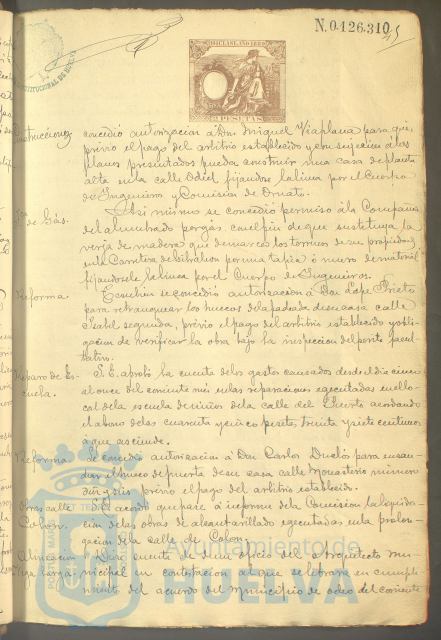 N. 0.126.310
CONSTITUCIONAL DE HUELVA
10ª CLASE. AÑO 1889
PESETAS
concedió autorizacion á Don Miguel Viaplana para que,
previo el pago del arbitrio establecido y con sujecion á los
planos presentados pueda construir una casa de planta
alta en la calle Odiel fijandose la linea por el Cuerpo
de Ingenieros y Comision de Ornato.
de Gas.
Asi mismo se concedió permiso á la Compañia
del alumbrado por gas, con el fin de que sustituya la
verja de madera que demarca los terrenos de su propiedad
en la Carretera de por una tapia ó muro de material
fijandosele la linea por el Cuerpo de Ingenieros.
Reforma
Tambien se concedió autorizacion á Don Lope Prieto
para retranquear los huecos de la fachada de su casa calle
Isabel segunda, previo el pago del arbitrio establecido y obli-
gacion de verificar la obra bajo la inspeccion del perito facul-
tativo.
Reparo de Es-
cuela.
S. E. aprobó la cuenta de los gastos causados desde el dia cinco
al once del corriente mes en las reparaciones ejecutadas en el lo-
cal de la escuela de niños de la calle del Puerto acordando
el abono de las cuarenta y cinco pesetas, treinta y siete centimos
á que asciende.
Reforma
Se concedió autorizacion á Don Carlos Duclós para ensan-
char el hueco de puerta de su casa calle Monasterio número
diez y seis previo el pago del arbitrio establecido.
Obras calle
Colon.
Se acordó que pase á informe de la Comision la liquida-
cion de las obras de alcantarillado ejecutadas en la prolon-
gacion de la calle de Colon.
Alineacion
Dada cuenta de un oficio del arquitecto mu-
nicipal en contestacion al que se libró en cumpli-
miento del acuerdo del Municipio de ocho del corriente
Ayuntamiento de
HUELVA